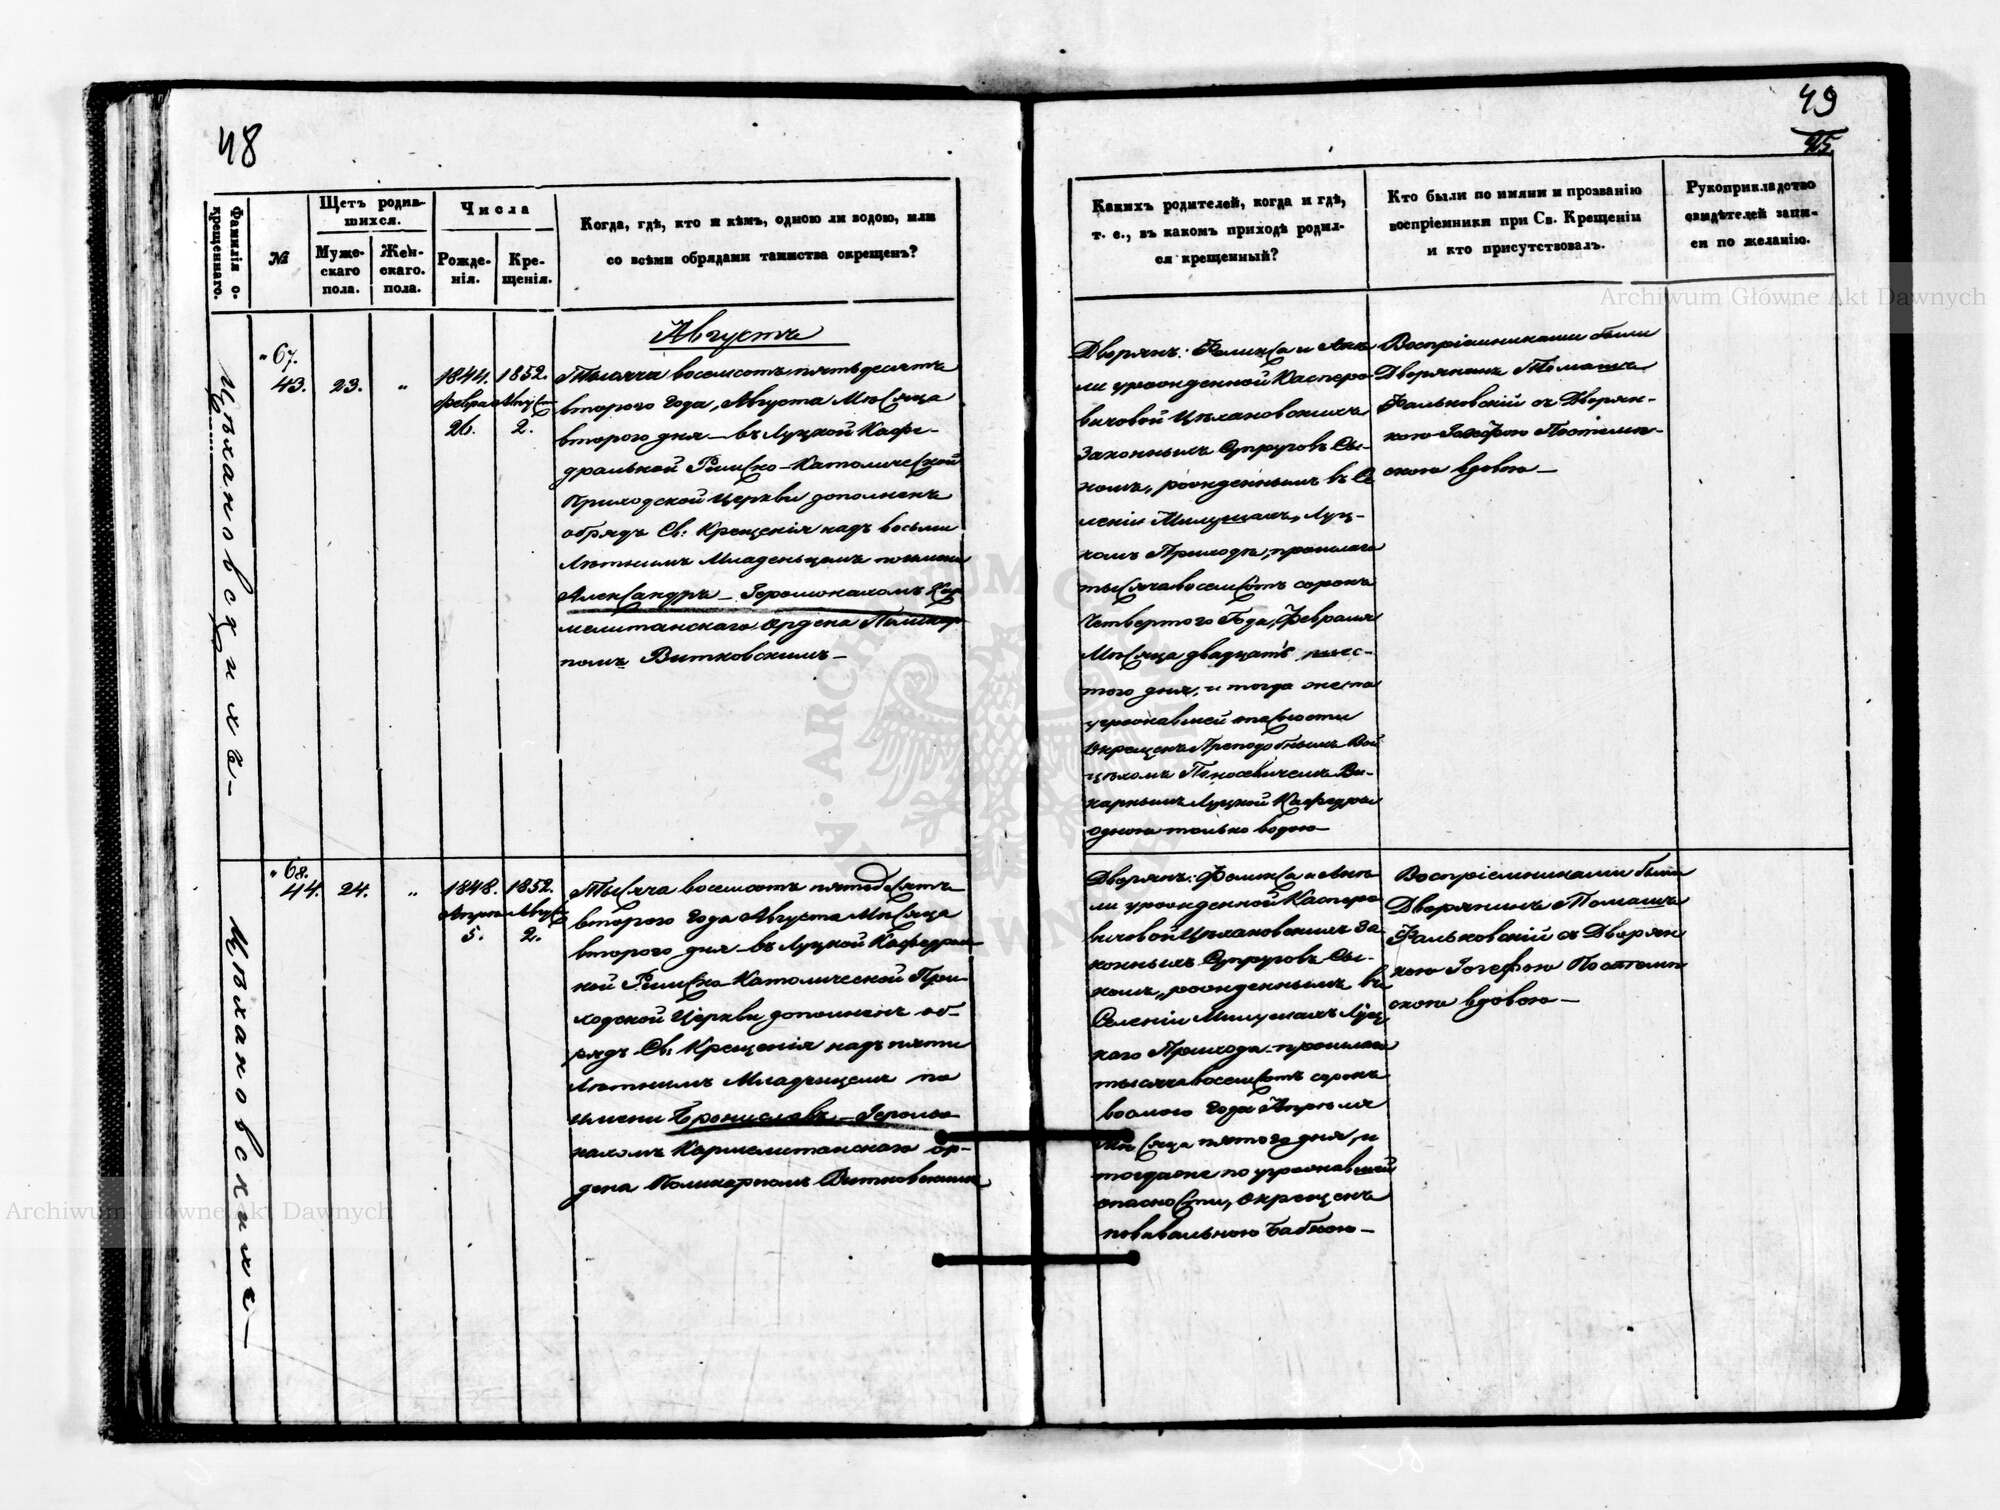 48
Фамилія о-
крещеннаго.
№
Щетъ родив-
шихся.
Муже-
скаго
пола.
Жен-
скаго.
пола.
Числа
Рожде-
нія.
Кре-
щенія.
Когда, гдѣ, кто и кѣмъ, одною ли водою, или
со всѣми обрядами таинства окрещенъ?
Цѣхановскихъ—
" 67.
43.
23.
"
1844.
Февра
26.
1852.
Август
2.
Августъ
Тысяча восемсотъ пятьдесятъ
втораго года, Августа Мѣсяца
втораго дня — въ Луцкой Кафе-
дральной Римско-Католической
Приходской Церкви дополненъ
обрядъ Св: Крещенія надъ восьми
лѣтнимъ Младенцемъ по имени
Александръ — Іеромонахомъ Кар
мелитанскаго Ордена Поликар
помъ Витковскимъ—
Цѣхановскихъ—
" 68.
44.
24.
"
1848.
Апрѣл
5.
1852.
Август
2.
Тысяча восемсотъ пятьдесятъ
втораго года Августа Мѣсяца
втораго дня — въ Луцкой Кафедраль
ной Римско-Католической При-
ходской Церкви дополненъ об-
рядъ Св: Крещенія надъ пяти
лѣтнимъ Младенцемъ по
имени Брониславъ — Іеромо
нахомъ Кармелитанскаго ор-
дена Поликарпомъ Витковскимъ
49
25.
Какихъ родителей, когда и гдѣ,
т. е., въ какомъ приходѣ родил-
ся крещенный?
Кто были по имяни и прозванію
воспріемники при Св. Крещеніи
и кто присутствовалъ.
Рукоприкладство
свидѣтелей запи-
си по желанію.
Дворянъ: Феликса и Анѣ
ли урожденной Касперо
вичовой Цѣхановскихъ
Законныхъ Супруговъ Сы-
номъ, рожденнымъ въ Се
леніи Милушахъ, Луц-
комъ Приходѣ, прошлаго
тысяча восемсотъ сорокъ
Четвертого Года, Февраля
Мѣсяца двадцать шес-
того дня, и тогда же по
угрожавшей опасности
Окрещенъ Преподобнымъ Вой
цѣхомъ Ви-
карнымъ Луцкой Кафедры
одною только водою—
Воспріемниками были
Дворянинъ Томашъ
Фальковскій съ Дворян-
кою Іозефою Постемп-
скою вдовою—
Дворянъ: Феликса и Анѣ
ли урожденной Касперо
вичовой Цѣхановскихъ За
конныхъ Супруговъ Сы-
номъ, рожденнымъ въ
Селеніи Милушахъ Луц
каго Прихода прошлаго
тысяча восемсотъ сорокъ
восмого года Апрѣля
Мѣсяца пятого дня, и
тогда же по угрожавшей
опасности, окрещенъ
повивальною бабкою—
Воспріемниками были
Дворянинъ Томашъ
Фальковскій съ Дворян
кою Іозефою Постемп
скою вдовою—
Archiwum Główne Akt Dawnych
Archiwum Główne Akt Dawnych